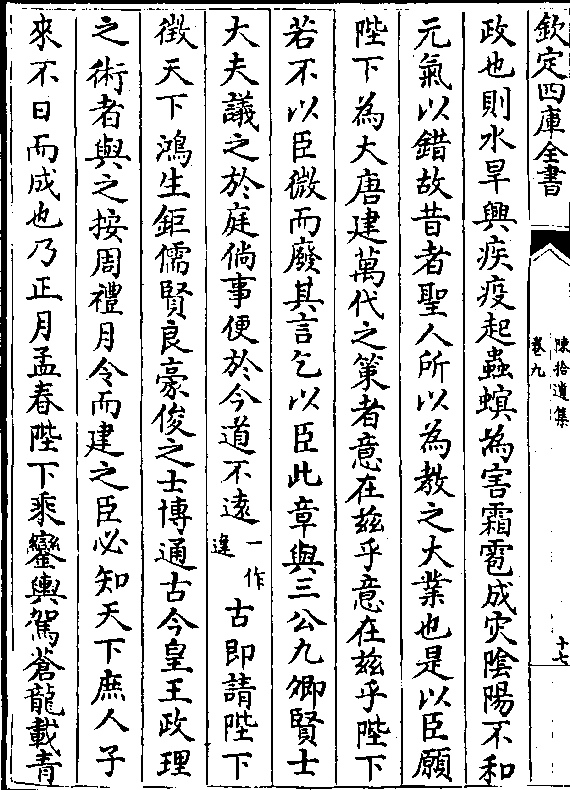 欽定四庫全書
陳拾遺集
卷九
十七
政也則水旱興疾疫起蟲螟為害霜雹成灾陰陽不和
元氣以錯故昔者聖人所以為教之大業也是以臣願
陛下為大唐建萬代之策者意在兹乎意在兹乎陛下
若不以臣微而廢其言乞以臣此章與三公九卿賢士
大夫議之於庭倘事便於今道不遠一作違古即請陛下
徴天下鴻生鉅儒賢良豪俊之士博通古今皇王政理
之術者與之按周禮月令而建之臣必知天下庶人子
來不日而成也乃正月孟春陛下乘鑾輿駕蒼龍載青